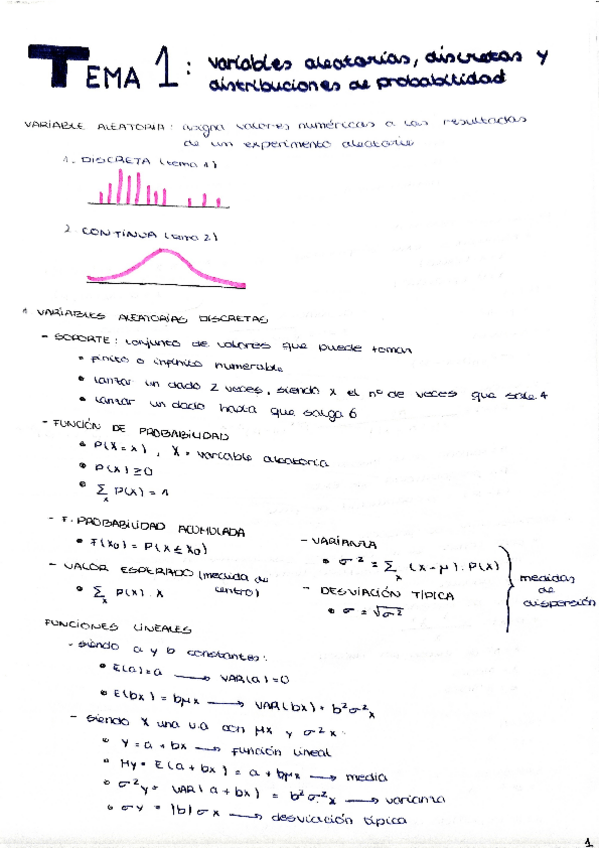 TEMA 1: variables aleatorias, discretas y
distribuciones de probabilidad
VARIABLE ALEATORIA: asigna valores numéricos a los resultados
de un experimento aleatorio
1. DISCRETA (tema 1)
2. CONTINUA (tema 2)
1 VARIABLES ALEATORIAS DISCRETAS
- SOPORTE: conjunto de valores que puede tomar
• finito o infinito numerable
• lanzar un dado 2 veces, siendo x el nº de veces que sale 4
• lanzar un dado hasta que salga 6
- FUNCIÓN DE PROBABILIDAD
• P(X=x), X = variable aleatoria
• P(X) ≥ 0
• Σx P(X) = 1
- F. PROBABILIDAD ACUMULADA
• F(x0) = P(X ≤ x0)
- VALOR ESPERADO (medida de centro)
• Σx P(X).X
- VARIANZA
• σ² = Σx (x-μ).P(X)
- DESVIACIÓN TÍPICA
• σ = √σ²
medidas
de
dispersión
FUNCIONES LINEALES
- siendo a y b constantes:
• E(a)=a → VAR(a)=0
• E(bx) = bμx → VAR(bx) = b²σ²x
- siendo X una v.a con μx y σ²x:
• Y = a + bx → función lineal
• My = E(a+bx) = a + bμx → media
• σ²y = VAR(a+bx) = b²σ²x → varianza
• σy = |b|σx → desviación típica
1